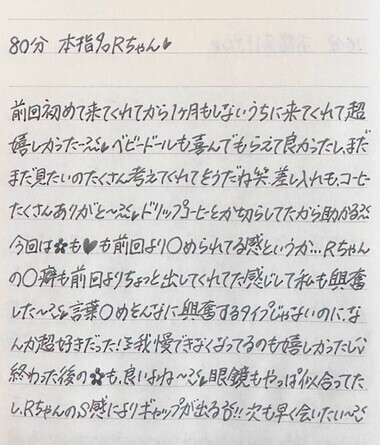 80分 本指名Rちゃん♥
前回初めて来てくれてから1ヶ月もしないうちに来てくれて超
嬉しかった〜ベビードールも喜んでもらえて良かったし、まだ
まだ見たいのたくさん考えてくれてそうだね笑 差し入れも、コーヒー
たくさんありがと〜ドリップコーヒーとか切らしてたから助かる
今回は✿も♥も前回より〇められてる感というか…Rちゃん
の〇癖も前回よりちょっと出してくれてた感じして私も興奮
した〜言葉〇めそんなに興奮するタイプじゃないのに、な
んか超好きだった!我慢できなくなってるのも嬉しかったし
終わった後の✿も、良いよね〜眼鏡もやっぱ似合ってた
し、RちゃんのS感によりギャップが出る!!次も早く会いたい〜